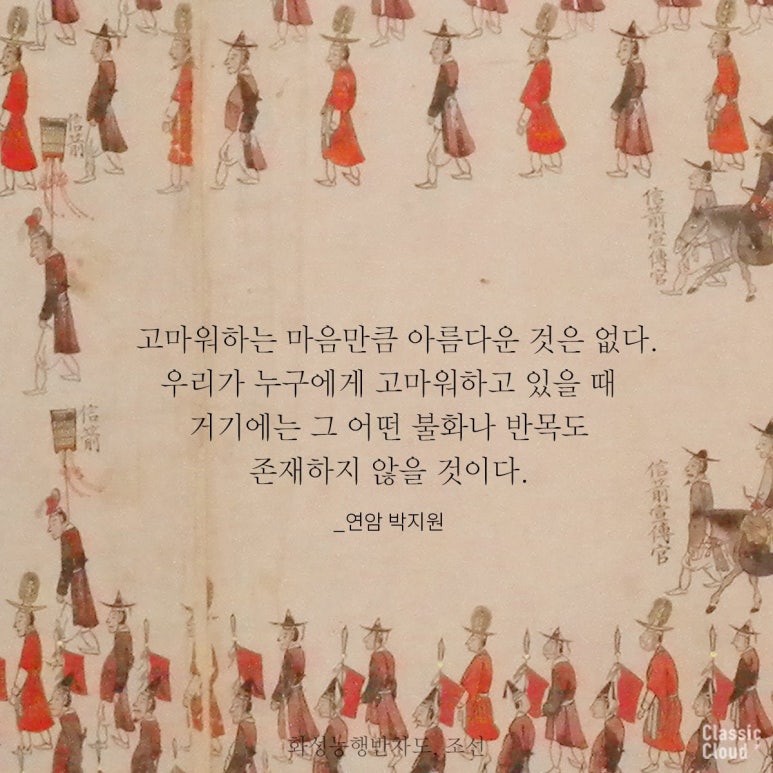 信箭
信箭宣傳官
고마워하는 마음만큼 아름다운 것은 없다.
우리가 누구에게 고마워하고 있을 때
거기에는 그 어떤 불화나 반목도
존재하지 않을 것이다.
_연암 박지원
信箭
信箭宣傳官
화성능행반차도, 조선
Classic
Cloud